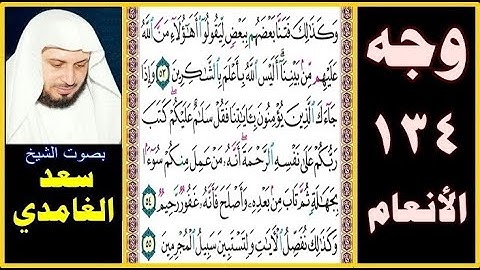 وجه
١٣٤
الأنعام
وَكَذَٰلِكَ فَتَنَّا بَعْضَهُم بِبَعْضٍ لِّيَقُولُوٓا۟ أَهَٰٓؤُلَآءِ مَنَّ ٱللَّهُ
عَلَيْهِم مِّنۢ بَيْنِنَآ ۗ أَلَيْسَ ٱللَّهُ بِأَعْلَمَ بِٱلشَّٰكِرِينَ ٥٣ وَإِذَا
جَآءَكَ ٱلَّذِينَ يُؤْمِنُونَ بِـَٔايَٰتِنَا فَقُلْ سَلَٰمٌ عَلَيْكُمْ ۖ كَتَبَ
رَبُّكُمْ عَلَىٰ نَفْسِهِ ٱلرَّحْمَةَ ۖ أَنَّهُۥ مَنْ عَمِلَ مِنكُمْ سُوٓءًۢا
بِجَهَٰلَةٍ ثُمَّ تَابَ مِنۢ بَعْدِهِۦ وَأَصْلَحَ فَأَنَّهُۥ غَفُورٌ رَّحِيمٌ ٥٤
وَكَذَٰلِكَ نُفَصِّلُ ٱلْـَٔايَٰتِ وَلِتَسْتَبِينَ سَبِيلُ ٱلْمُجْرِمِينَ ٥٥
بصوت الشيخ
سعد
الغامدي